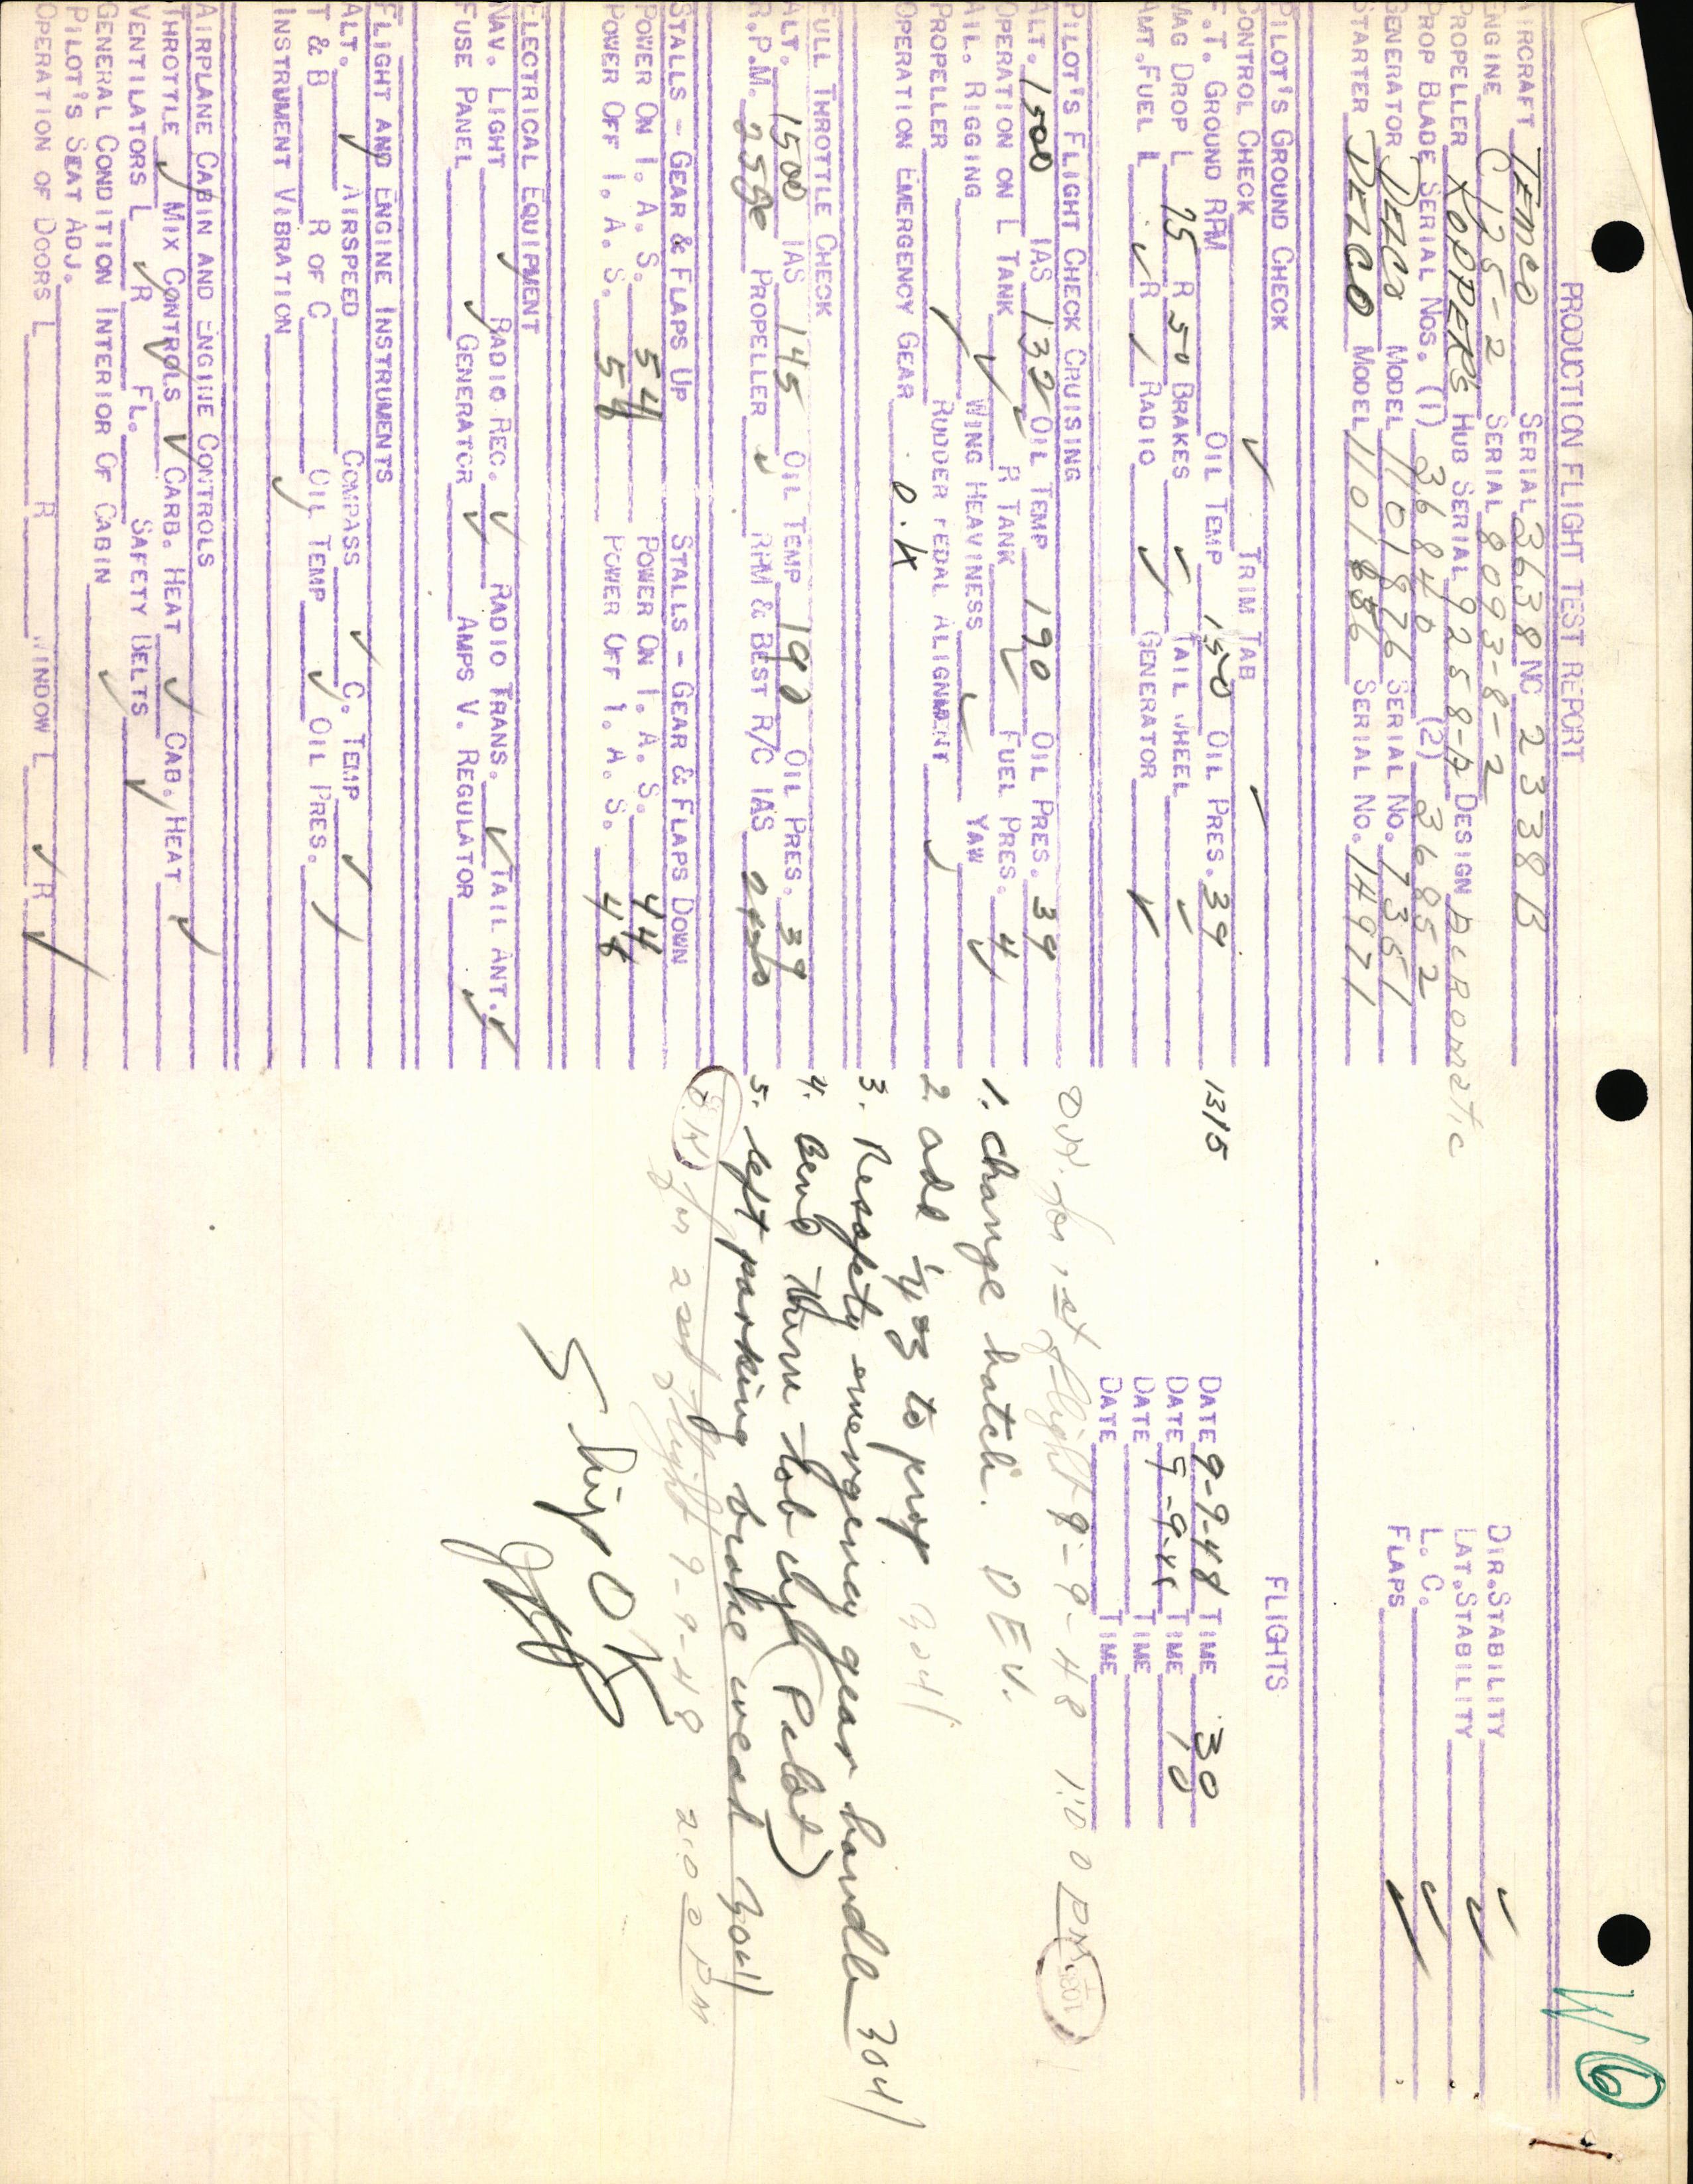 W 6
PRODUCTION FLIGHT TEST REPORT
AIRCRAFT TEMCO SERIAL 3638 NC 2338B
ENGINE C 125-2 SERIAL 8093-8-2
PROPELLER KOPPERS HUB SERIAL 9258-A DESIGN AEROMATIC
PROP BLADE SERIAL NOS. (1) 36840 (2) 36852
GENERATOR DELCO MODEL 1101876 SERIAL NO. 7351
STARTER DELCO MODEL 1101886 SERIAL NO. 14971
DIR. STABILITY ✓
LAT. STABILITY ✓
L. C. ✓
FLAPS ✓
PILOT'S GROUND CHECK
CONTROL CHECK ✓ TRIM TAB ✓
F.T. GROUND RPM OIL TEMP 150 OIL PRES. 39
MAG DROP L 75 R 50 BRAKES ✓ TAIL WHEEL ✓
AMT. FUEL L ✓ R ✓ RADIO ✓ GENERATOR ✓
1315
FLIGHTS
DATE 9-9-48 TIME 30
DATE 9-9-48 TIME 10
DATE TIME
DATE TIME
PILOT'S FLIGHT CHECK CRUISING
ALT. 1500 IAS 132 OIL TEMP 190 OIL PRES. 39
OPERATION ON L TANK ✓ R TANK ✓ FUEL PRES. 4
AIL. RIGGING ✓ WING HEAVINESS ✓ YAW ✓
PROPELLER ✓ RUDDER PEDAL ALIGNMENT ✓
OPERATION EMERGENCY GEAR O.K
FULL THROTTLE CHECK
ALT. 1500 IAS 145 OIL TEMP 190 OIL PRES. 39
R.P.M. PROPELLER ✓ RPM & BEST R/C IAS
STALLS - GEAR & FLAPS UP STALLS - GEAR & FLAPS DOWN
POWER ON I. A. S. 54 POWER ON I. A. S. 44
POWER OFF I. A. S. 58 POWER OFF I. A. S. 48
ELECTRICAL EQUIPMENT
NAV. LIGHT ✓ RADIO REC. ✓ RADIO TRANS. ✓ TAIL ANT. ✓
FUSE PANEL ✓ GENERATOR ✓ AMPS V. REGULATOR ✓
FLIGHT AND ENGINE INSTRUMENTS
ALT. ✓ AIRSPEED COMPASS ✓ C. TEMP ✓
T & B R OF C OIL TEMP ✓ OIL PRES. ✓
INSTRUMENT VIBRATION ✓
AIRPLANE CABIN AND ENGINE CONTROLS
THROTTLE ✓ MIX CONTROLS ✓ CARB. HEAT ✓ CAB. HEAT ✓
VENTILATORS L ✓ R ✓ FL. SAFETY BELTS ✓
GENERAL CONDITION INTERIOR OF CABIN ✓
PILOT'S SEAT ADJ.
OPERATION OF DOORS L R WINDOW L ✓ R ✓
O.K. for 1st flight 9-9-48 1:00 PM
1. Change hatch. DEV.
2. add 1/4 oz to prop 3041
3. Resafety emergency gear handle 3041
4. Bend Thum tab up (Pilot)
5. left parking brake weak 3041
O.K. for 2nd flight 9-9-48 2:00 PM
Ship OK